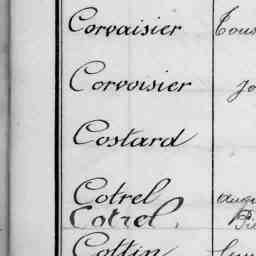 Corvaisier
Corvoisier
Costard
Cotrel
Cotrel.
Cottin